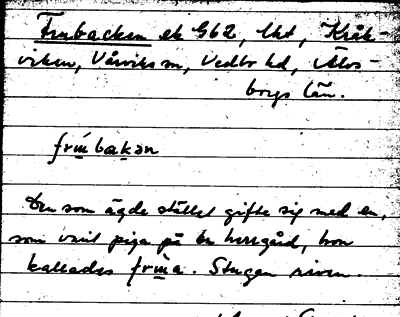 Frubacken ek 562, lht, Kråk-
viken, Vårviks sn, Vedbo hd, Älvs-
borgs län.
frɯ́bakan
Den som ägde stället gifte sig med en,
som varit piga på en herrgård, hon
kallades frɯa. Stugan riven.